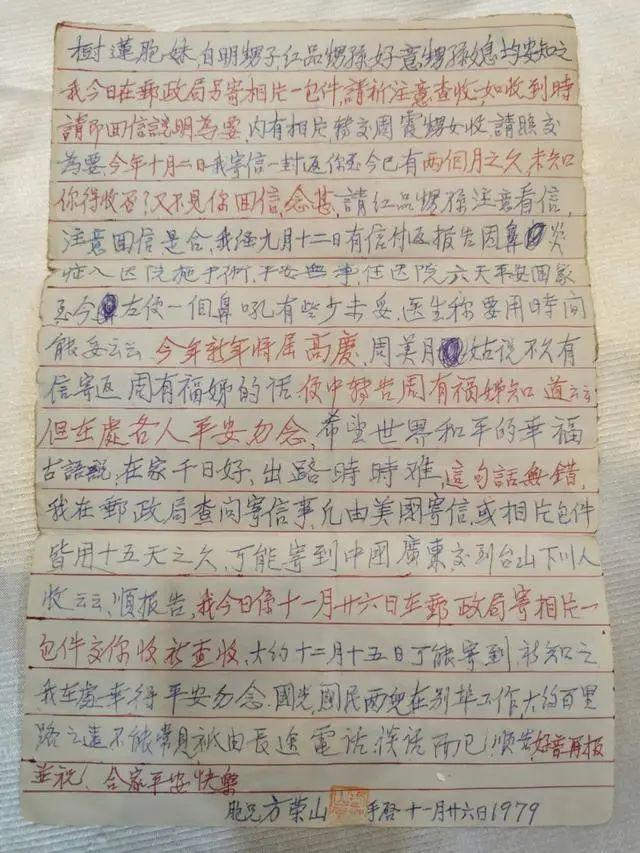 樹蓮胞妹,自明甥子,紅品甥孫,好意甥孫媳均安知之
我今日在郵政局另寄相片一包件,請祈注意查收,如收到時
請即回信說明為要,內有相片轉交周霞甥女收,請照交
為要,今年十月二日我寄信一封返你至今已有两個月之久,未知
你得收否?又不見你回信,念甚,請紅品甥孫注意看信,
注意回信是合,我經九月十二日有信付返报告因鼻炎
症入医院施手術,平安無事,住医院六天平安回家
至今左使一個鼻吼有些少未妥,医生称要用時間
能妥云云,今年新年将屆高慶,周美月姑說不久有
信寄返周有福娣的话,使中轉告周有福娣知道云云
但在處各人平安勿念,希望世界和平的幸福
古語說,在家千日好,出路一時時难,這句話無错,
我在郵政局查问寄信事,凡由美國寄信,或相片包件
皆用十五天之久,可能寄到中國廣東交到台山下川人
收云云,順报告,我今日係十一月廿六日在郵政局寄相片一
包件交你收祈查收,大約十二月十五日可能寄到祈知之
我在處幸得平安勿念,國光,國民两兒在别埠工作,大約百里
路之遠不能常見祇由長途電话談话而已,順告,好音再报
並祝,合家平安快樂
胞兄方荣山 手啓十一月廿六日1979